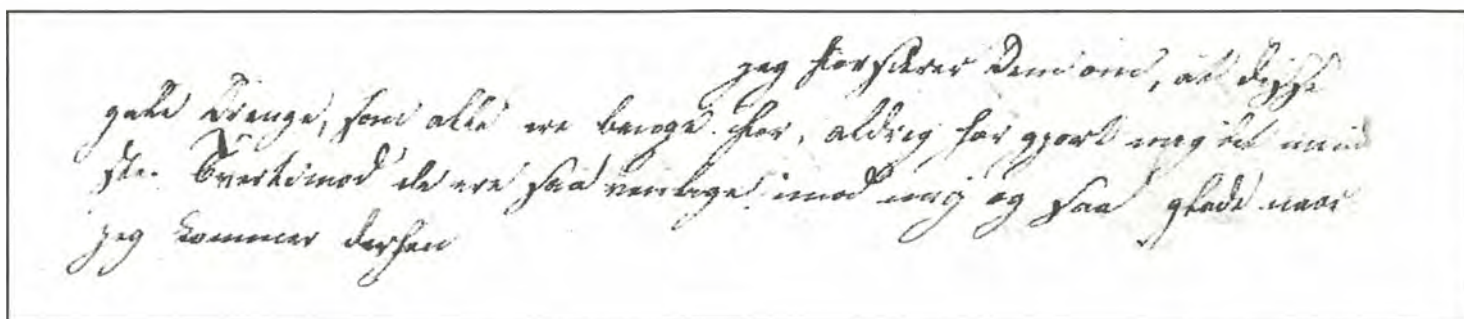 jeg forsikrer Dem om, at disse
gale Drenge, som alle ere bange for, aldrig har gjort mig det mind
ste. Tvertimod de ere saa venlige imod mig og saa glade naar
jeg kommer derhen